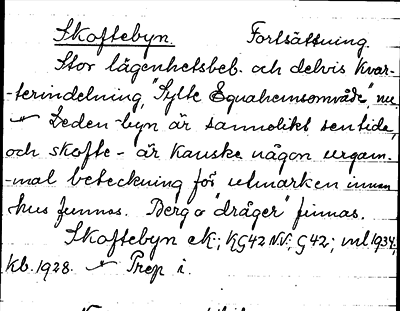 Skoftebyn. Fortsättning.
Stor lägenhetsbeb. och delvis kvar-
-terindelning, "Sylte Egnahemsområde", nu
Leden -byn är sannolikt sentida,
och skofte- är kanske någon urgam-
-mal beteckning för utmarken innan
hus funnos. Berg o "dråger" finnas.
Skoftebyn ek; KG42 NV.; G42; ml. 1934,
Kb. 1928. Prep i.